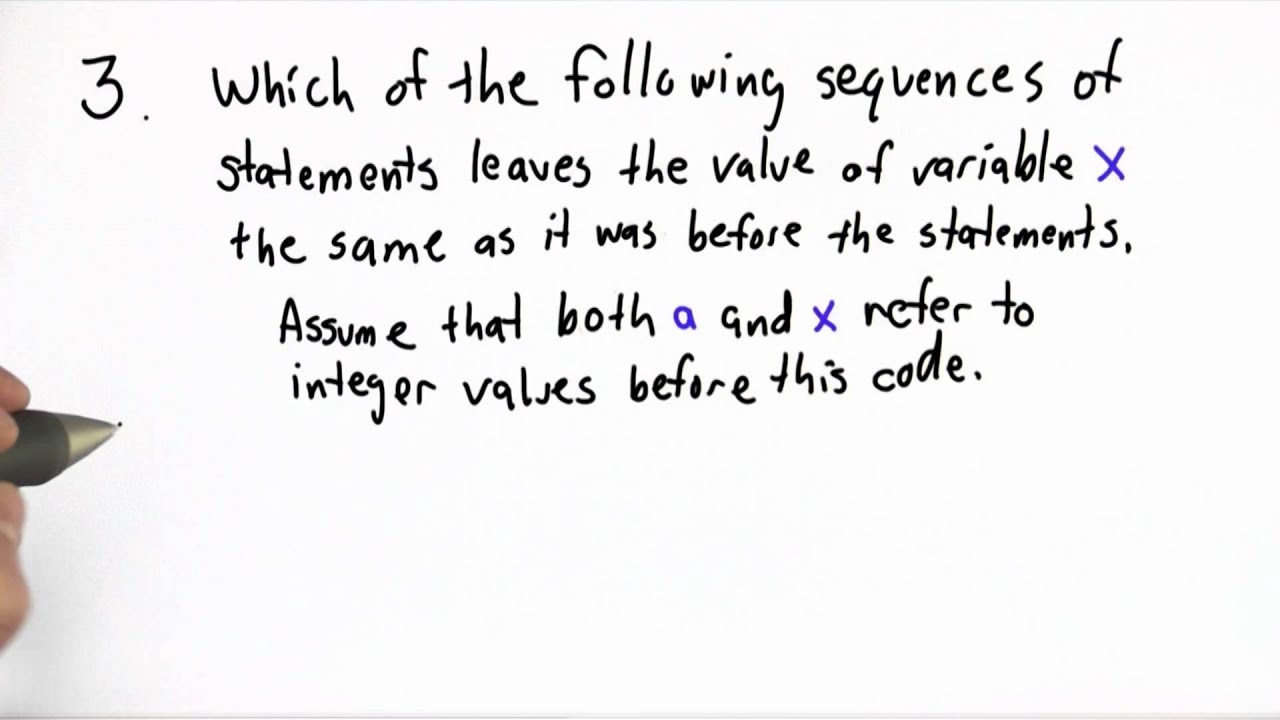 3. Which of the following sequences of
statements leaves the value of variable x
the same as it was before the statements.
Assume that both a and x refer to
integer values before this code.